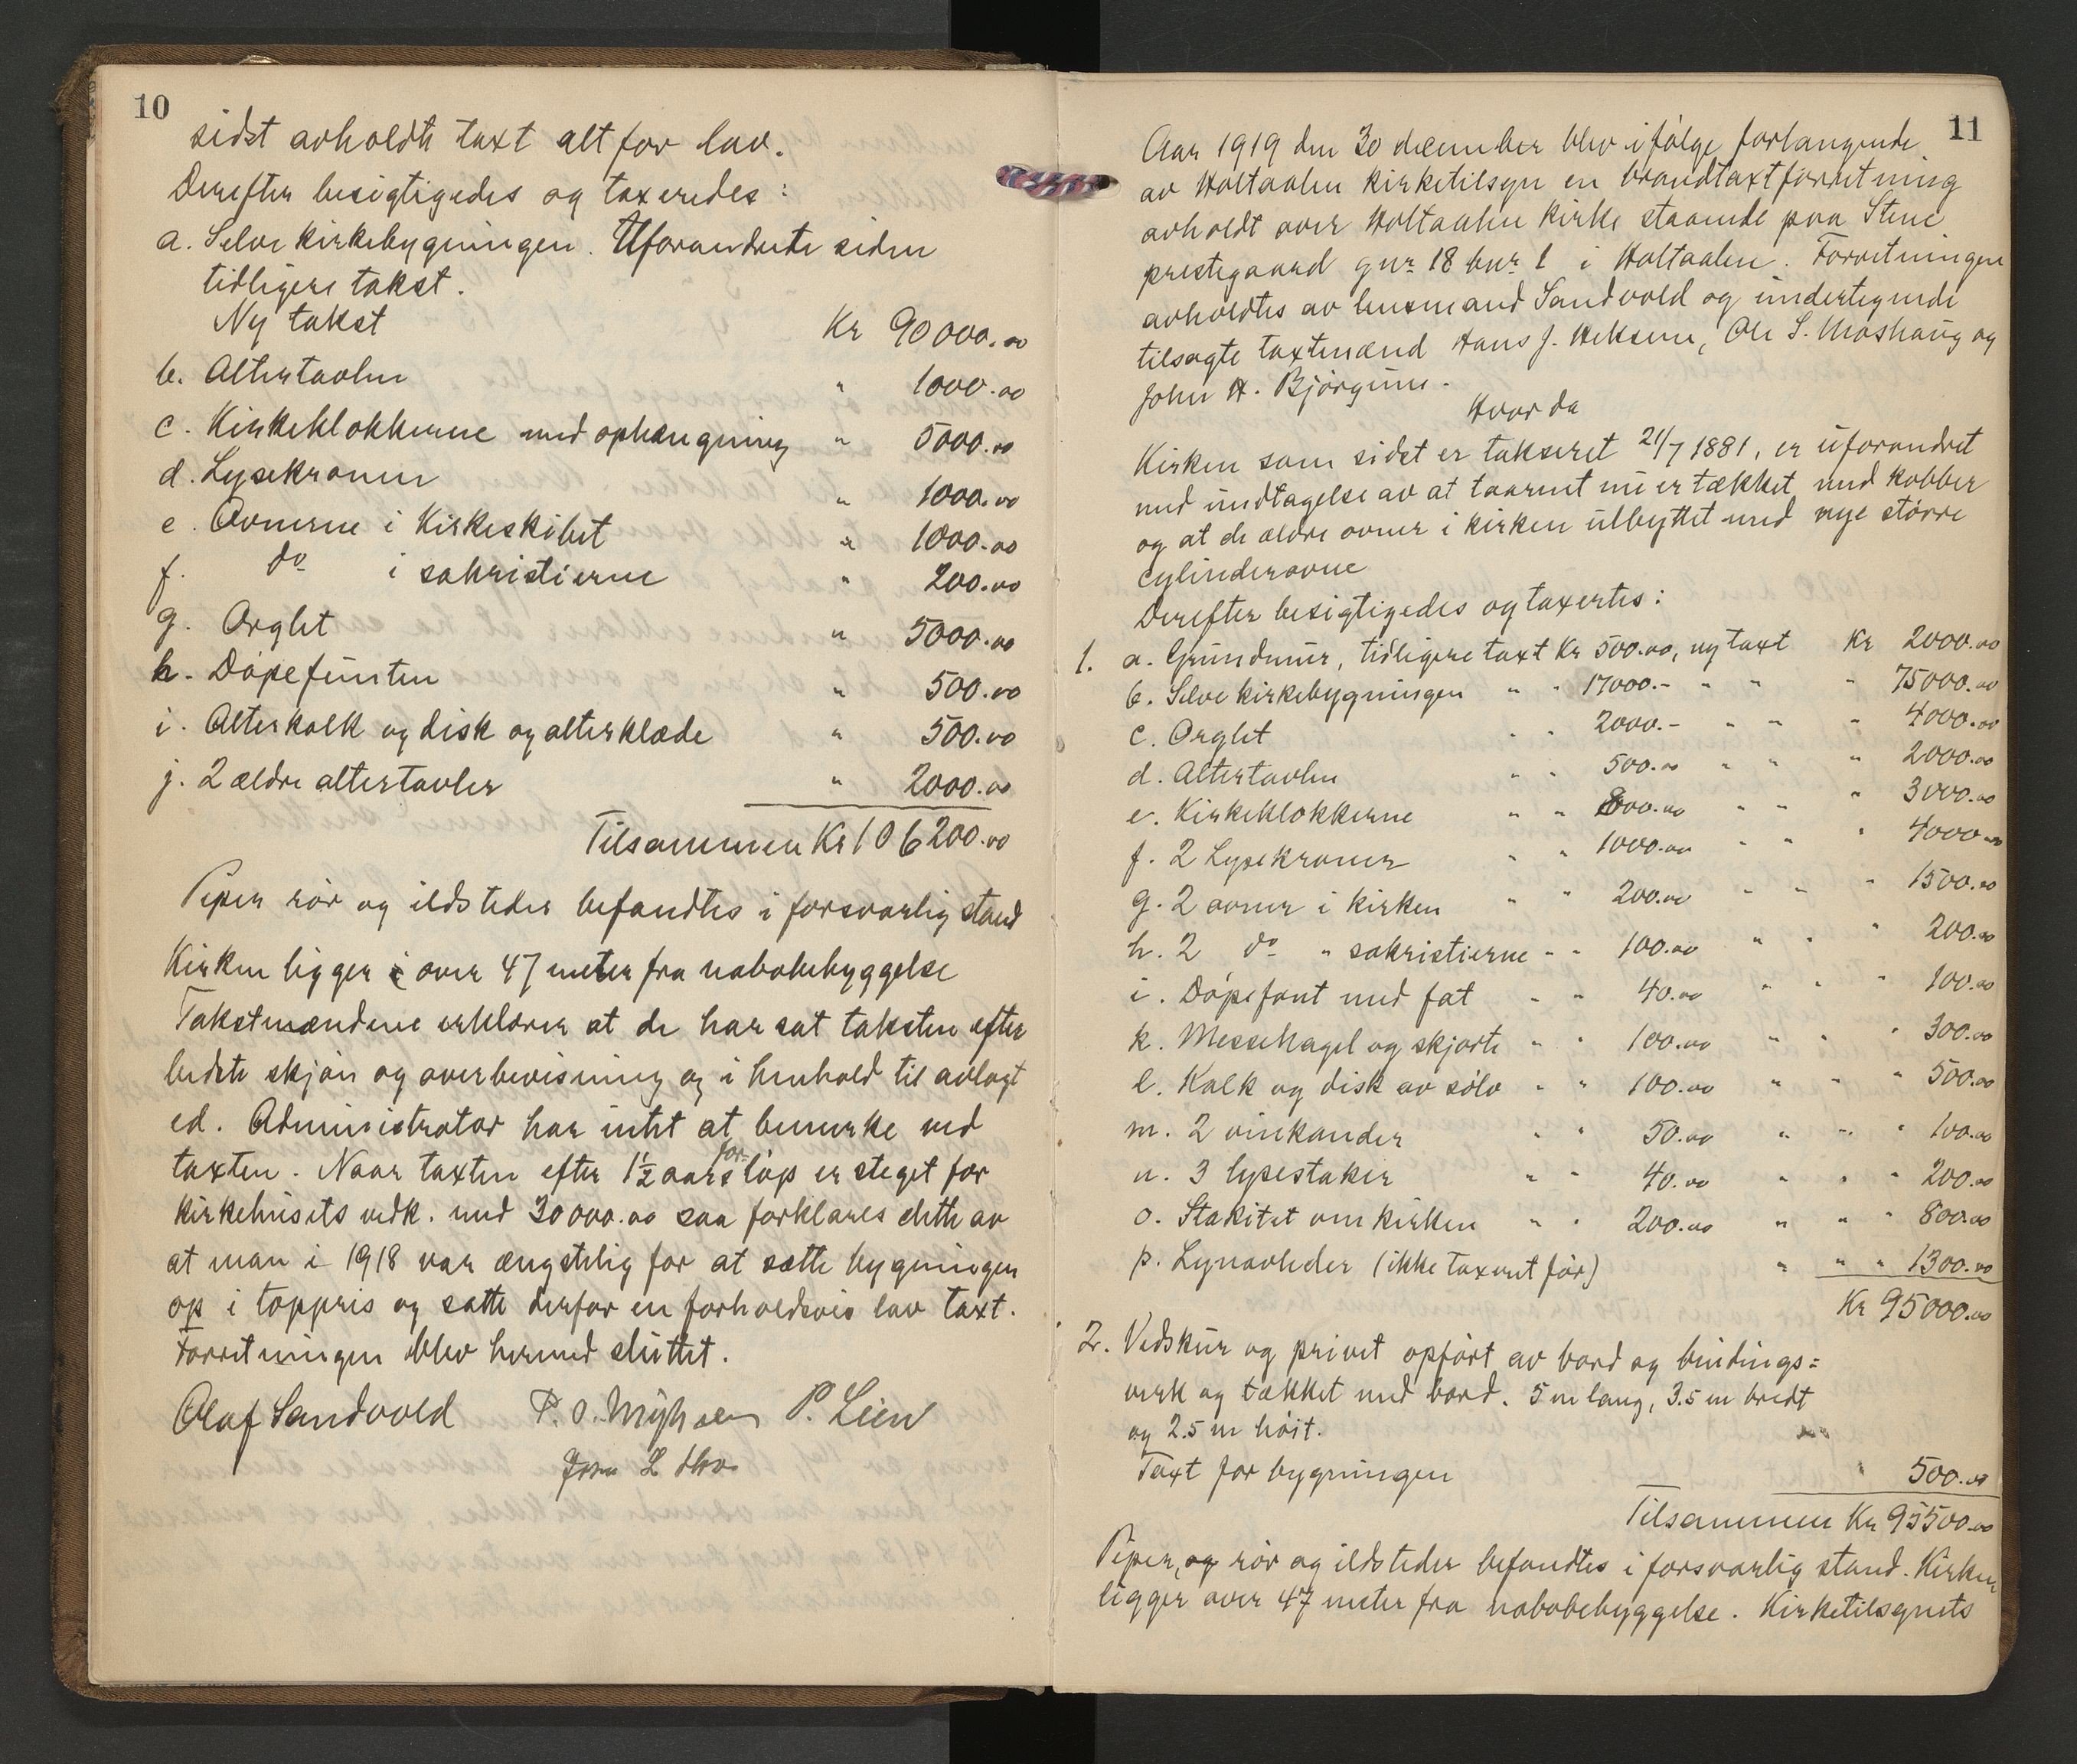 10
sidst avholdte taxt alt for lav.
Derefter besigtigedes og taxeredes:
a. Selve kirkebygningen. Uforandrete siden
tidligere takst.
Ny takst Kr 90000.00
b. Altertavlen " 1000.00
c. Kirkeklokkerne med ophængning " 5000.00
d. Lysekronen " 1000.00
e. Ovnerne i Kirkeskibet " 1000.00
f. do i sakristierne " 200.00
g. Orglet " 5000.00
h. Døpefunten " 500.00
i. Alterkalk og disk og alterklæde " 500.00
j. 2 ældre altertavler " 2000.00
Tilsammen Kr 106200.00
Piper rør og ildsteder befandtes i forsvarlig stand
Kirken ligger over 47 meter fra nabobebyggelse
Takstmændene erklærer at de har sat taksten efter
bedste skjøn og overbevisning og i henhold til avlagt
ed. Administrator har intet at bemerke ved
taxten. Naar taxten efter 1½ aars forløp er steget for
kirkehusets vedk. med 30000.00 saa forklares dette av
at man i 1918 var ængstelig for at sætte bygningen
op i toppris og satte derfor en forholdsvis lav taxt.
Forretningen blev hermed sluttet.
Olaf Sandvold P. O. P. Lien
11
Aar 1919 den 30 december blev ifølge forlangende
av Holtaalen kirketilsyn en brandtaxtforretning
avholdt over Holtaalen kirke staaende paa Stene
prestegaard gnr. 18 bnr. 1 i Holtaalen. Forretningen
avholdtes av lensmand Sandvold og undertegnede
tilsagte taxtmænd Hans J. Heksem, Ole S. Moshaug og
John H. Bjørgum.
Hvor da
Kirken som sidst er takseret 21/7 1881, er uforandret
med undtagelse av at taarnet nu er tækket med kobber
og at de ældre ovner i kirken utbyttet med nye større
cylinderovne
Derefter besigtigedes og taxertes:
1. a. Grundmur, tidligere taxt Kr 500.00, ny taxt Kr 2000.00
b. Selve kirkebygningen " " 17000.- " " " 75000.00
c. Orglet " " 2000.- " " " 4000.00
d. Altertavlen " " 500.00 " " " 2000.00
e. Kirkeklokkerne " " 800.00 " " " 3000.00
f. 2 Lysekroner " " 1000.00 " " " 4000.00
g. 2 ovner i kirken " " 200.00 " " " 1500.00
h. 2 do " sakristierne " " 100.00 " " " 200.00
i. Døpefont med fat " " 40.00 " " " 100.00
k. Messehagel og skjorte " " 100.00 " " " 300.00
l. Kalk og disk av sølv " " 100.00 " " " 500.00
m. 2 vinkander " " 50.00 " " " 100.00
n. 3 lysestaker " " 40.00 " " " 200.00
o. Stakitet om kirken " " 200.00 " " " 800.00
p. Lynavleder (ikke taxert før) " " " 1300.00
Kr 95000.00
2. Vedskur og privet opført av bord og bindings=
verk og tækket med bord. 5 m lang, 3.5 m bredt
og 2.5 m høit.
Taxt for bygningen " 500.00
Tilsammen Kr 95500.00
Piper, rør og ildsteder befandtes i forsvarlig stand. Kirken
ligger over 47 meter fra nabobebyggelse. Kirketilsynets